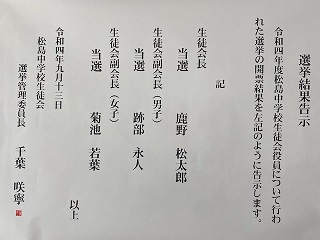 選挙結果告示
令和四年度松島中学校生徒会役員について行わ
れた選挙の開票結果を左記のように告示します。
記
生徒会長
当選 鹿野 松太郎
生徒会副会長（男子）
当選 跡部 永人
生徒会副会長（女子）
当選 菊池 若葉
以上
令和四年九月十三日
松島中学校生徒会
選挙管理委員長 千葉 咲寧